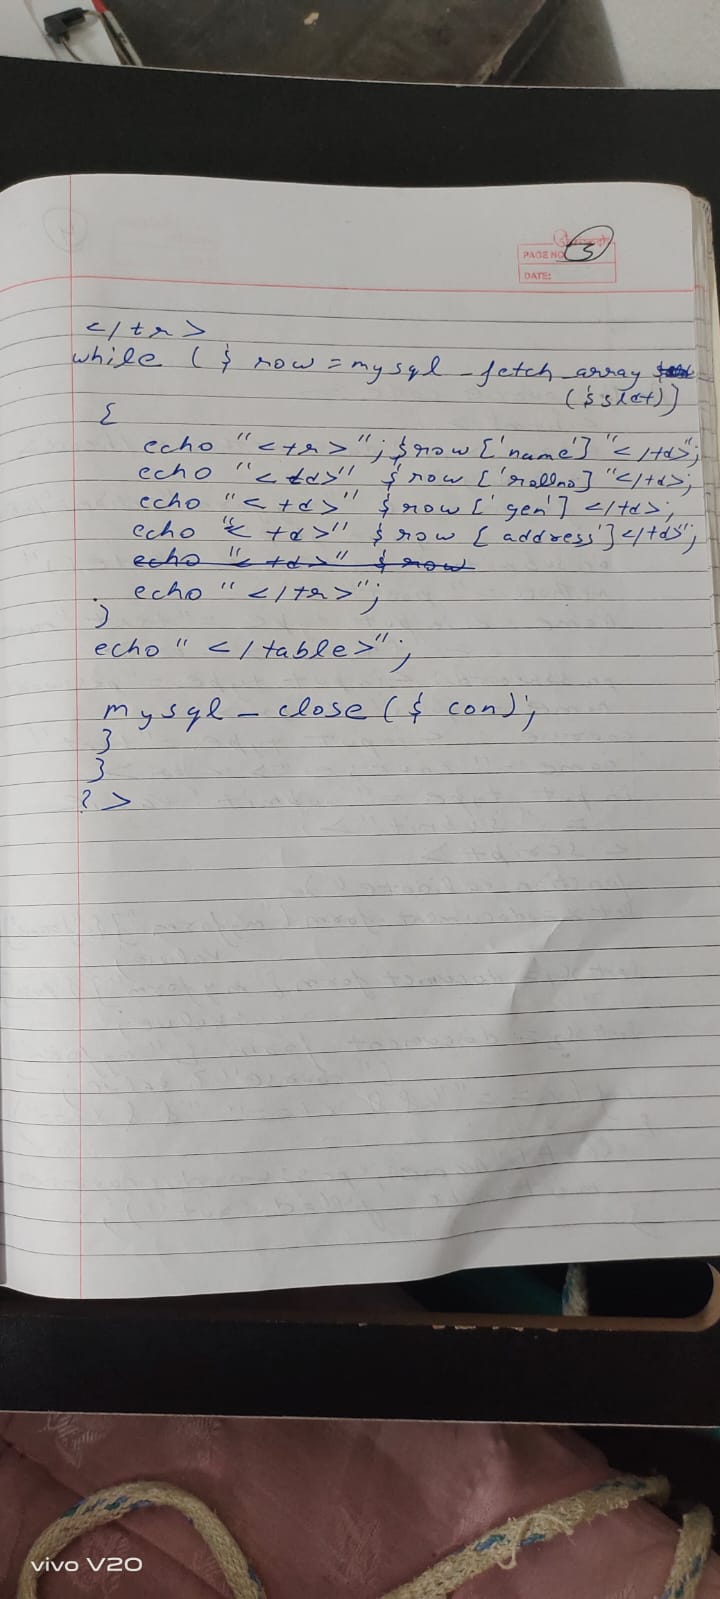 PAGE NO. 3
DATE:
</tr>
while ($ row = mysql_fetch_array
($slct)]
{
echo "<tr>"; $row ['name'] "</td>";
echo "<td>" $row ['rollno] "</td>;
echo "<td>" $row ['gen'] </td>;
echo "< td>" $row [address'] </td>";
echo "<td>" $row
echo "</tr>";
}
echo "</table>";
mysql_close ($ con);
}
}
?>
vivo V20